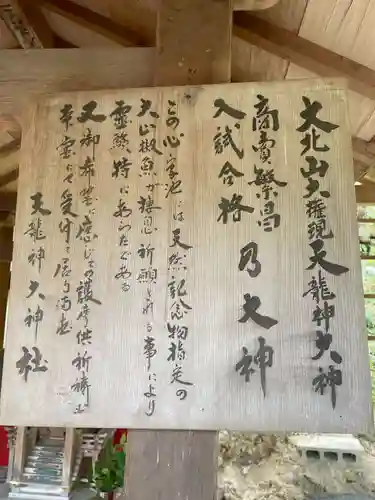 大北山大権現天龍神大神
商賣繁昌
入試合格
乃大神
この心字池には天然記念物指定の
大山椒魚が棲息祈願される事により
霊驗特にあらたである
又御希望に應じての護摩供祈祷は
本宝に受付に居り満す
天龍神大神社